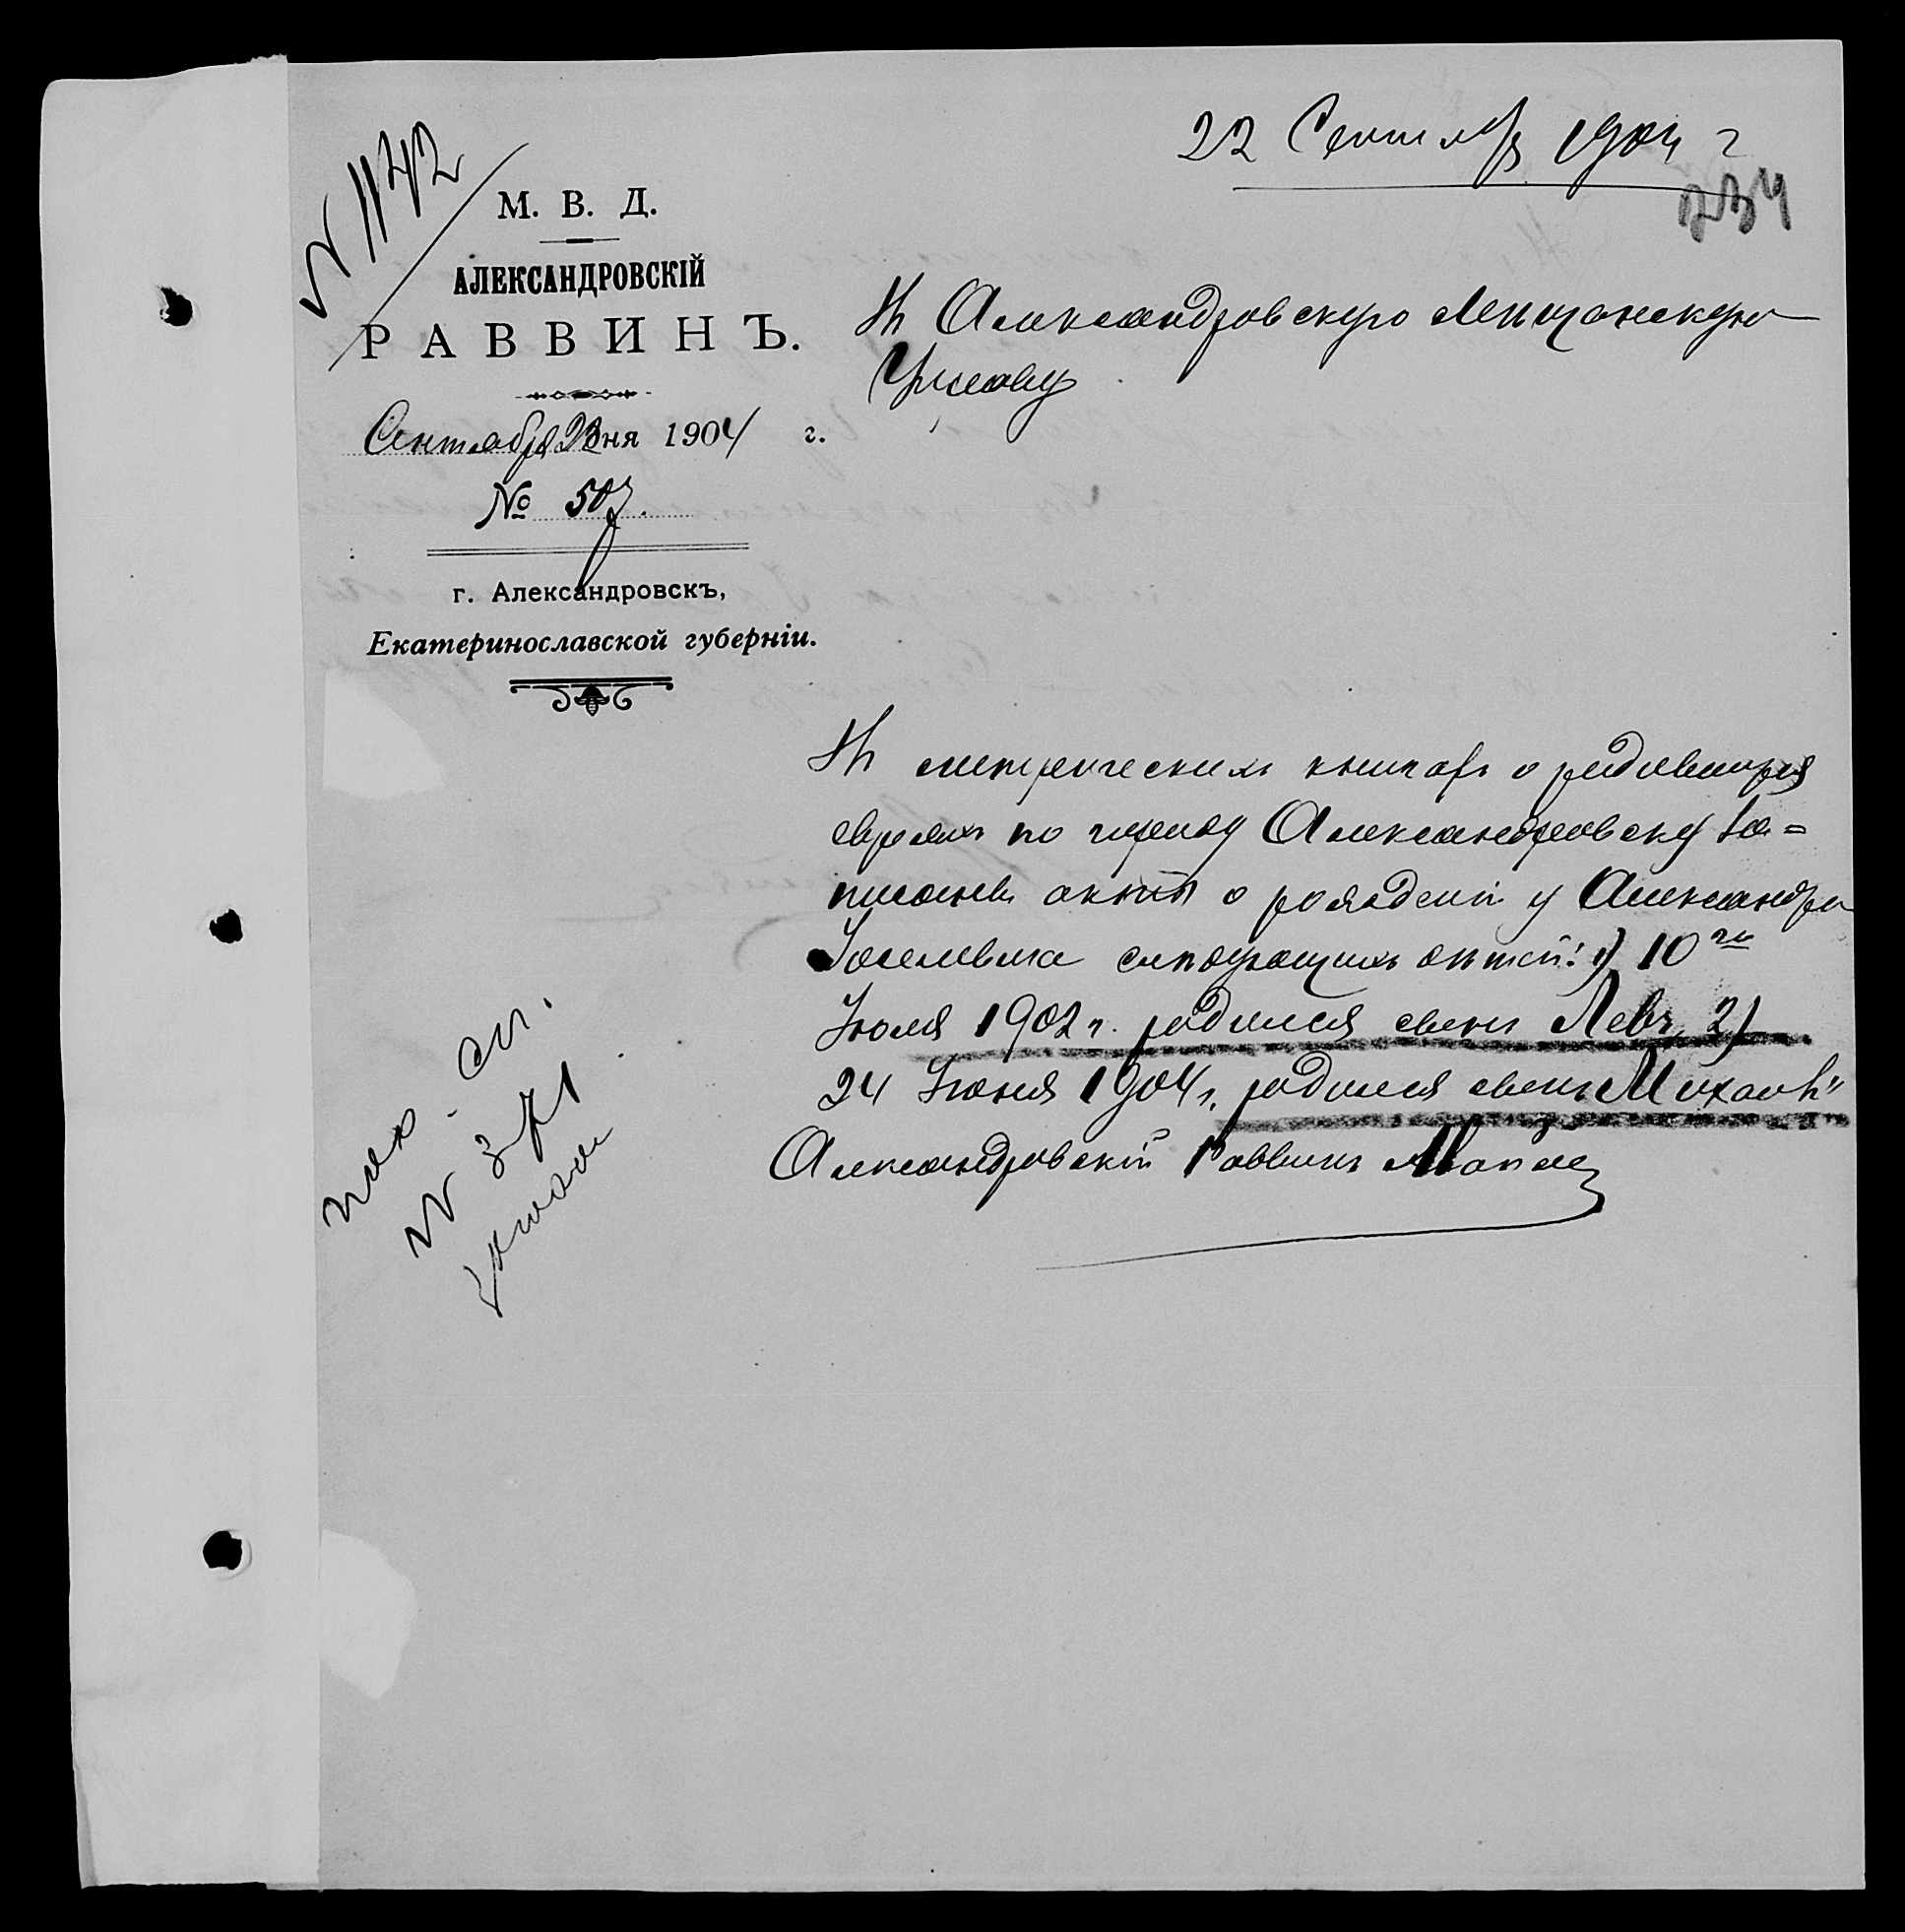 22 Сентября 1904 г
234
№ 1142
М. В. Д.
АЛЕКСАНДРОВСКІЙ
РАВВИНЪ.
Сентября 23 дня 1904 г.
№ 507.
г. Александровскъ,
Екатеринославской губерніи.
Въ Александровскую Мещанскую
Управу
Въ метрическихъ книгахъ о родившихся
евреяхъ по городу Александровску за=
писаны акты о рожденіи у Александра
слѣдующихъ дѣтей: 1) 10го
Іюля 1902 г. родился сынъ Левъ, 2)
24 Іюня 1904 г. родился сынъ Михаилъ"
Александровскій Раввинъ
№ 371